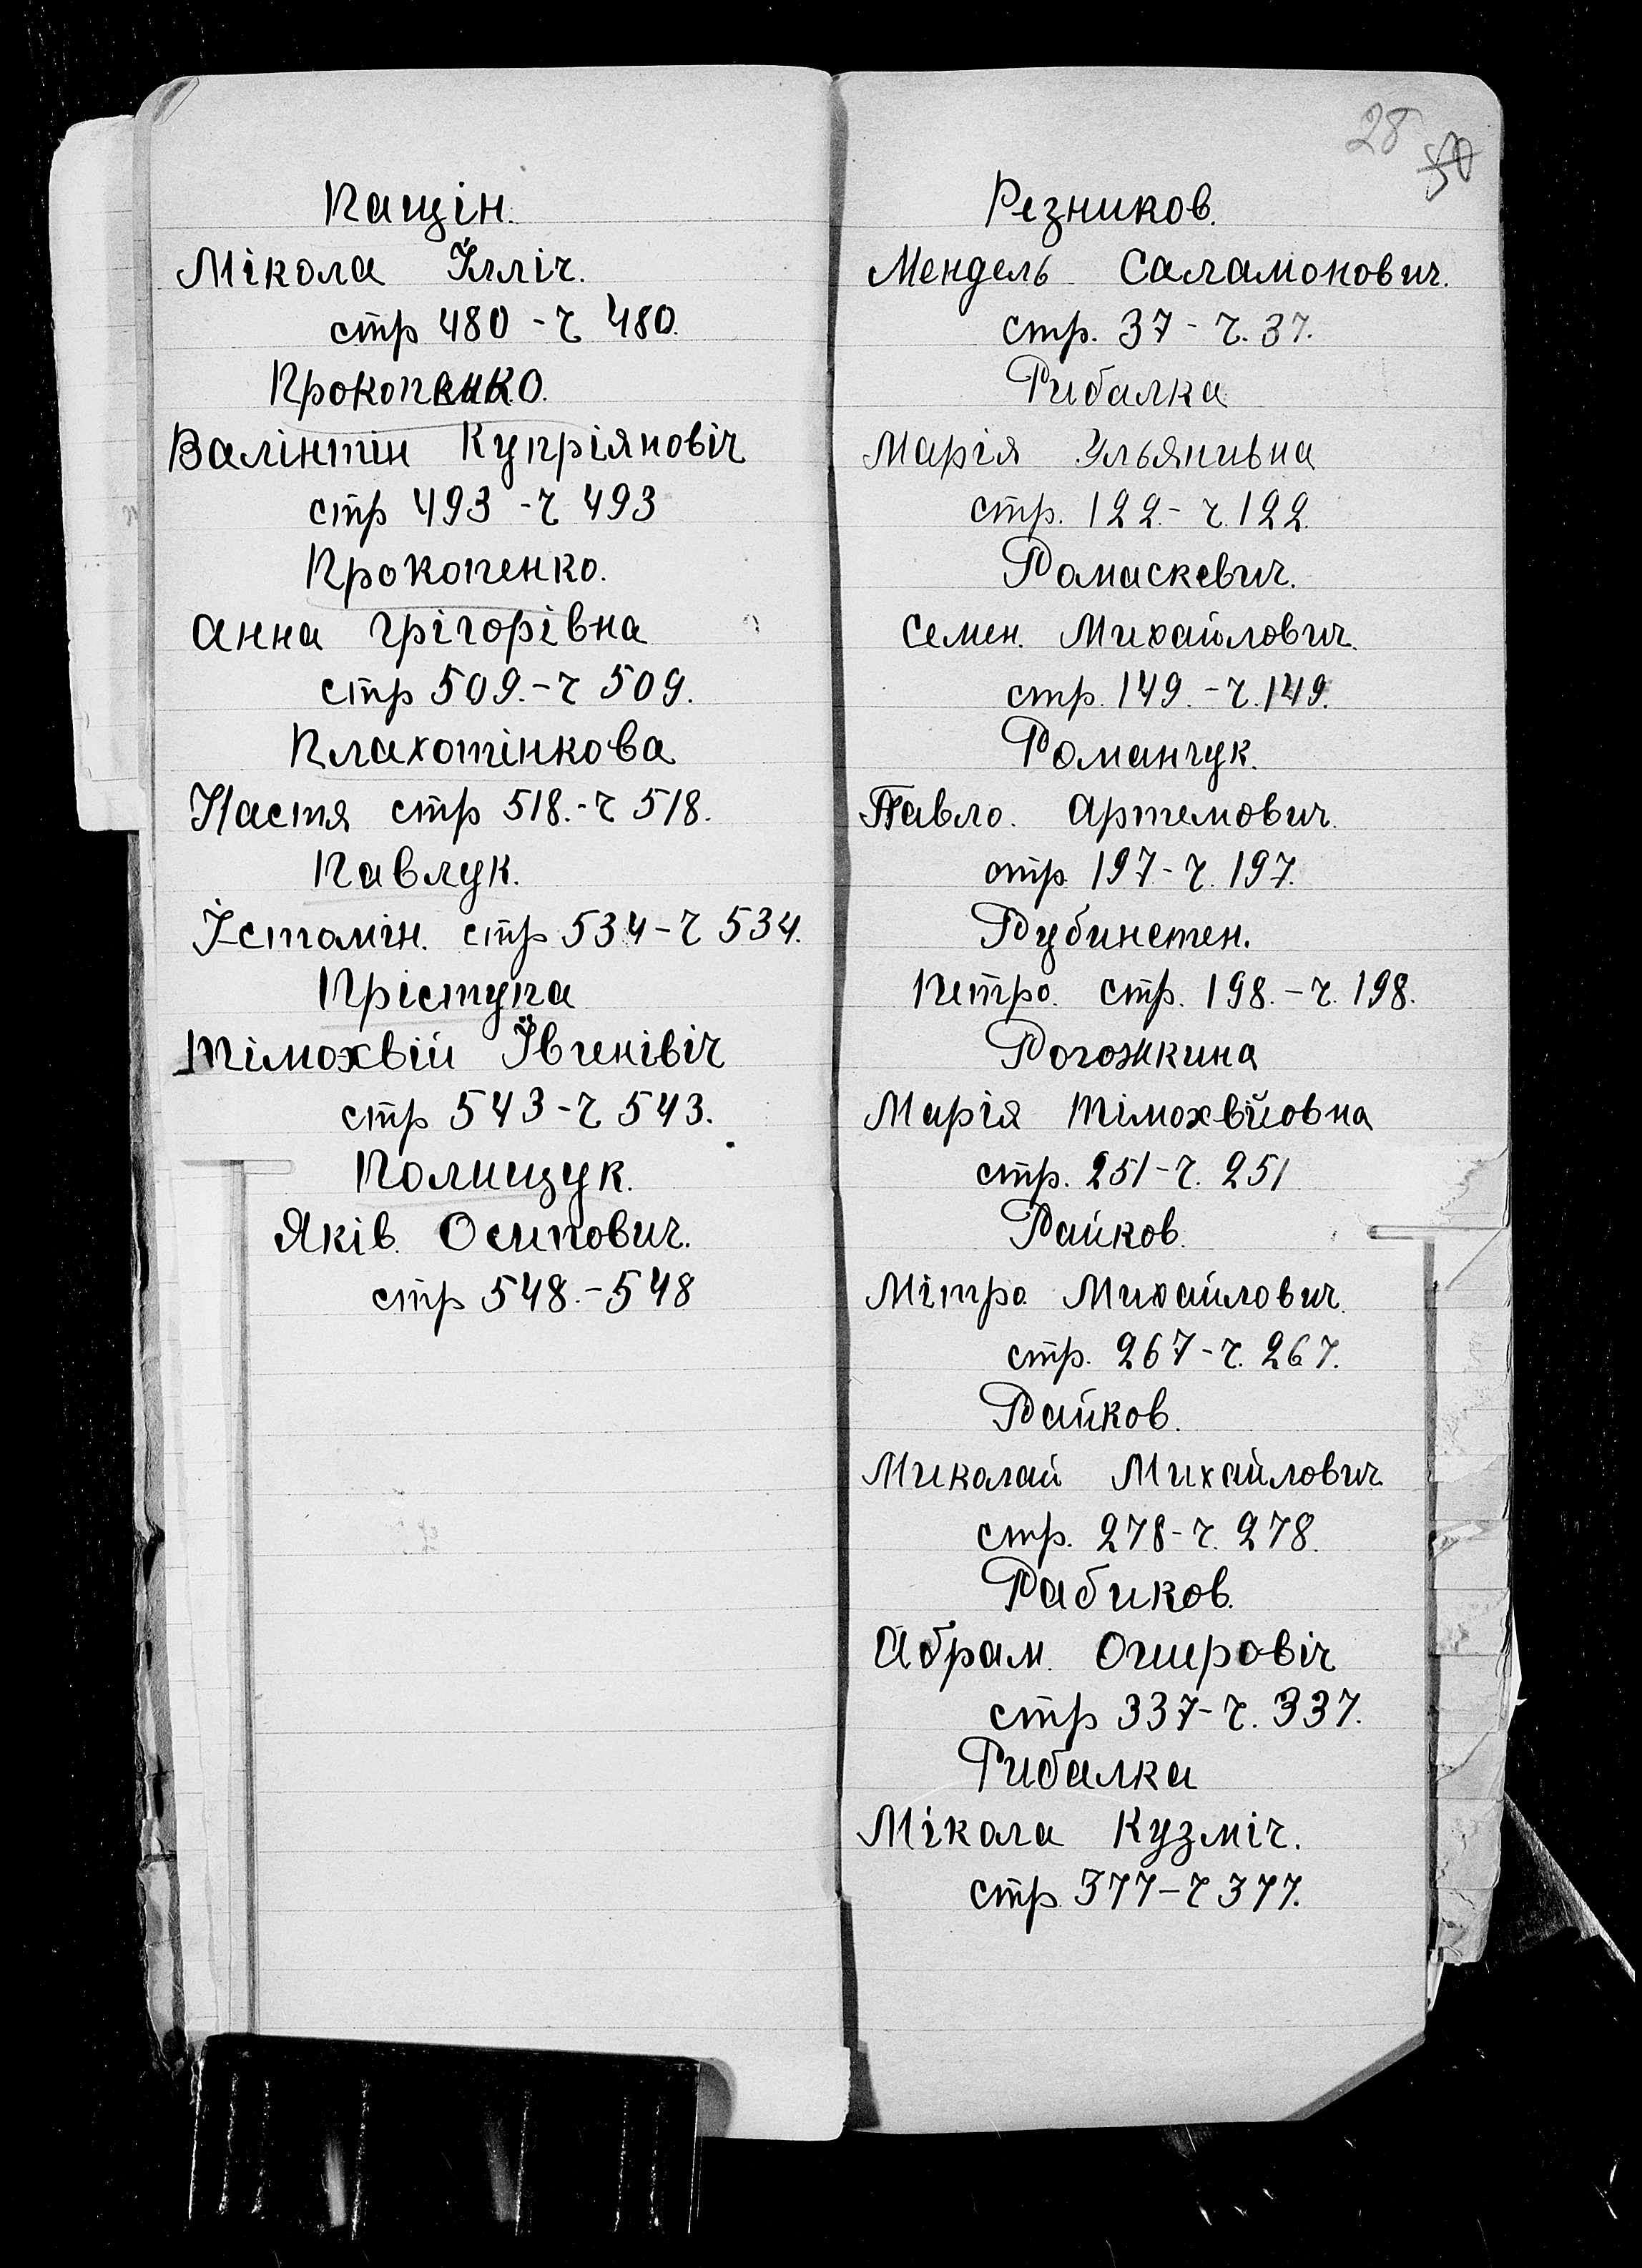 Пащін.
Мікола Ілліч.
стр 480 - ч 480.
Прокопенко.
Валінтін Купріяновіч
стр 493 - ч 493
Прокопенко.
Анна Грігорівна
стр 509. - ч 509.
Плахотінкова
Настя стр 518. - ч 518.
Павлук.
Істамін. стр 534 - ч 534.
Прiступа
Тімохвій Івгенівіч
стр 543 - ч 543.
Полищук.
Яків. Осипович.
стр 548. - 548
28 50
Резников.
Мендель Саламонович.
стр. 37 - ч. 37.
Рибалка
Марія Ульянивна
стр. 122. - ч. 122.
Ромаскевич.
Семен. Михайлович.
стр. 149. - ч. 149.
Романчук.
Павло. Артемович.
стр 197 - ч. 197.
Рубинстен.
Петро. стр. 198. - ч. 198.
Рогожкина
Марія Тімохвійовна
стр. 251 - ч. 251
Райков.
Мітро Михайлович.
стр. 267 - ч. 267.
Райков.
Миколай Михайлович
стр. 278 - ч. 278.
Рабиков.
Абрам. Ошеровіч
стр 337 - ч. 337.
Рибалка
Мікола Кузміч.
стр 377 - ч 377.